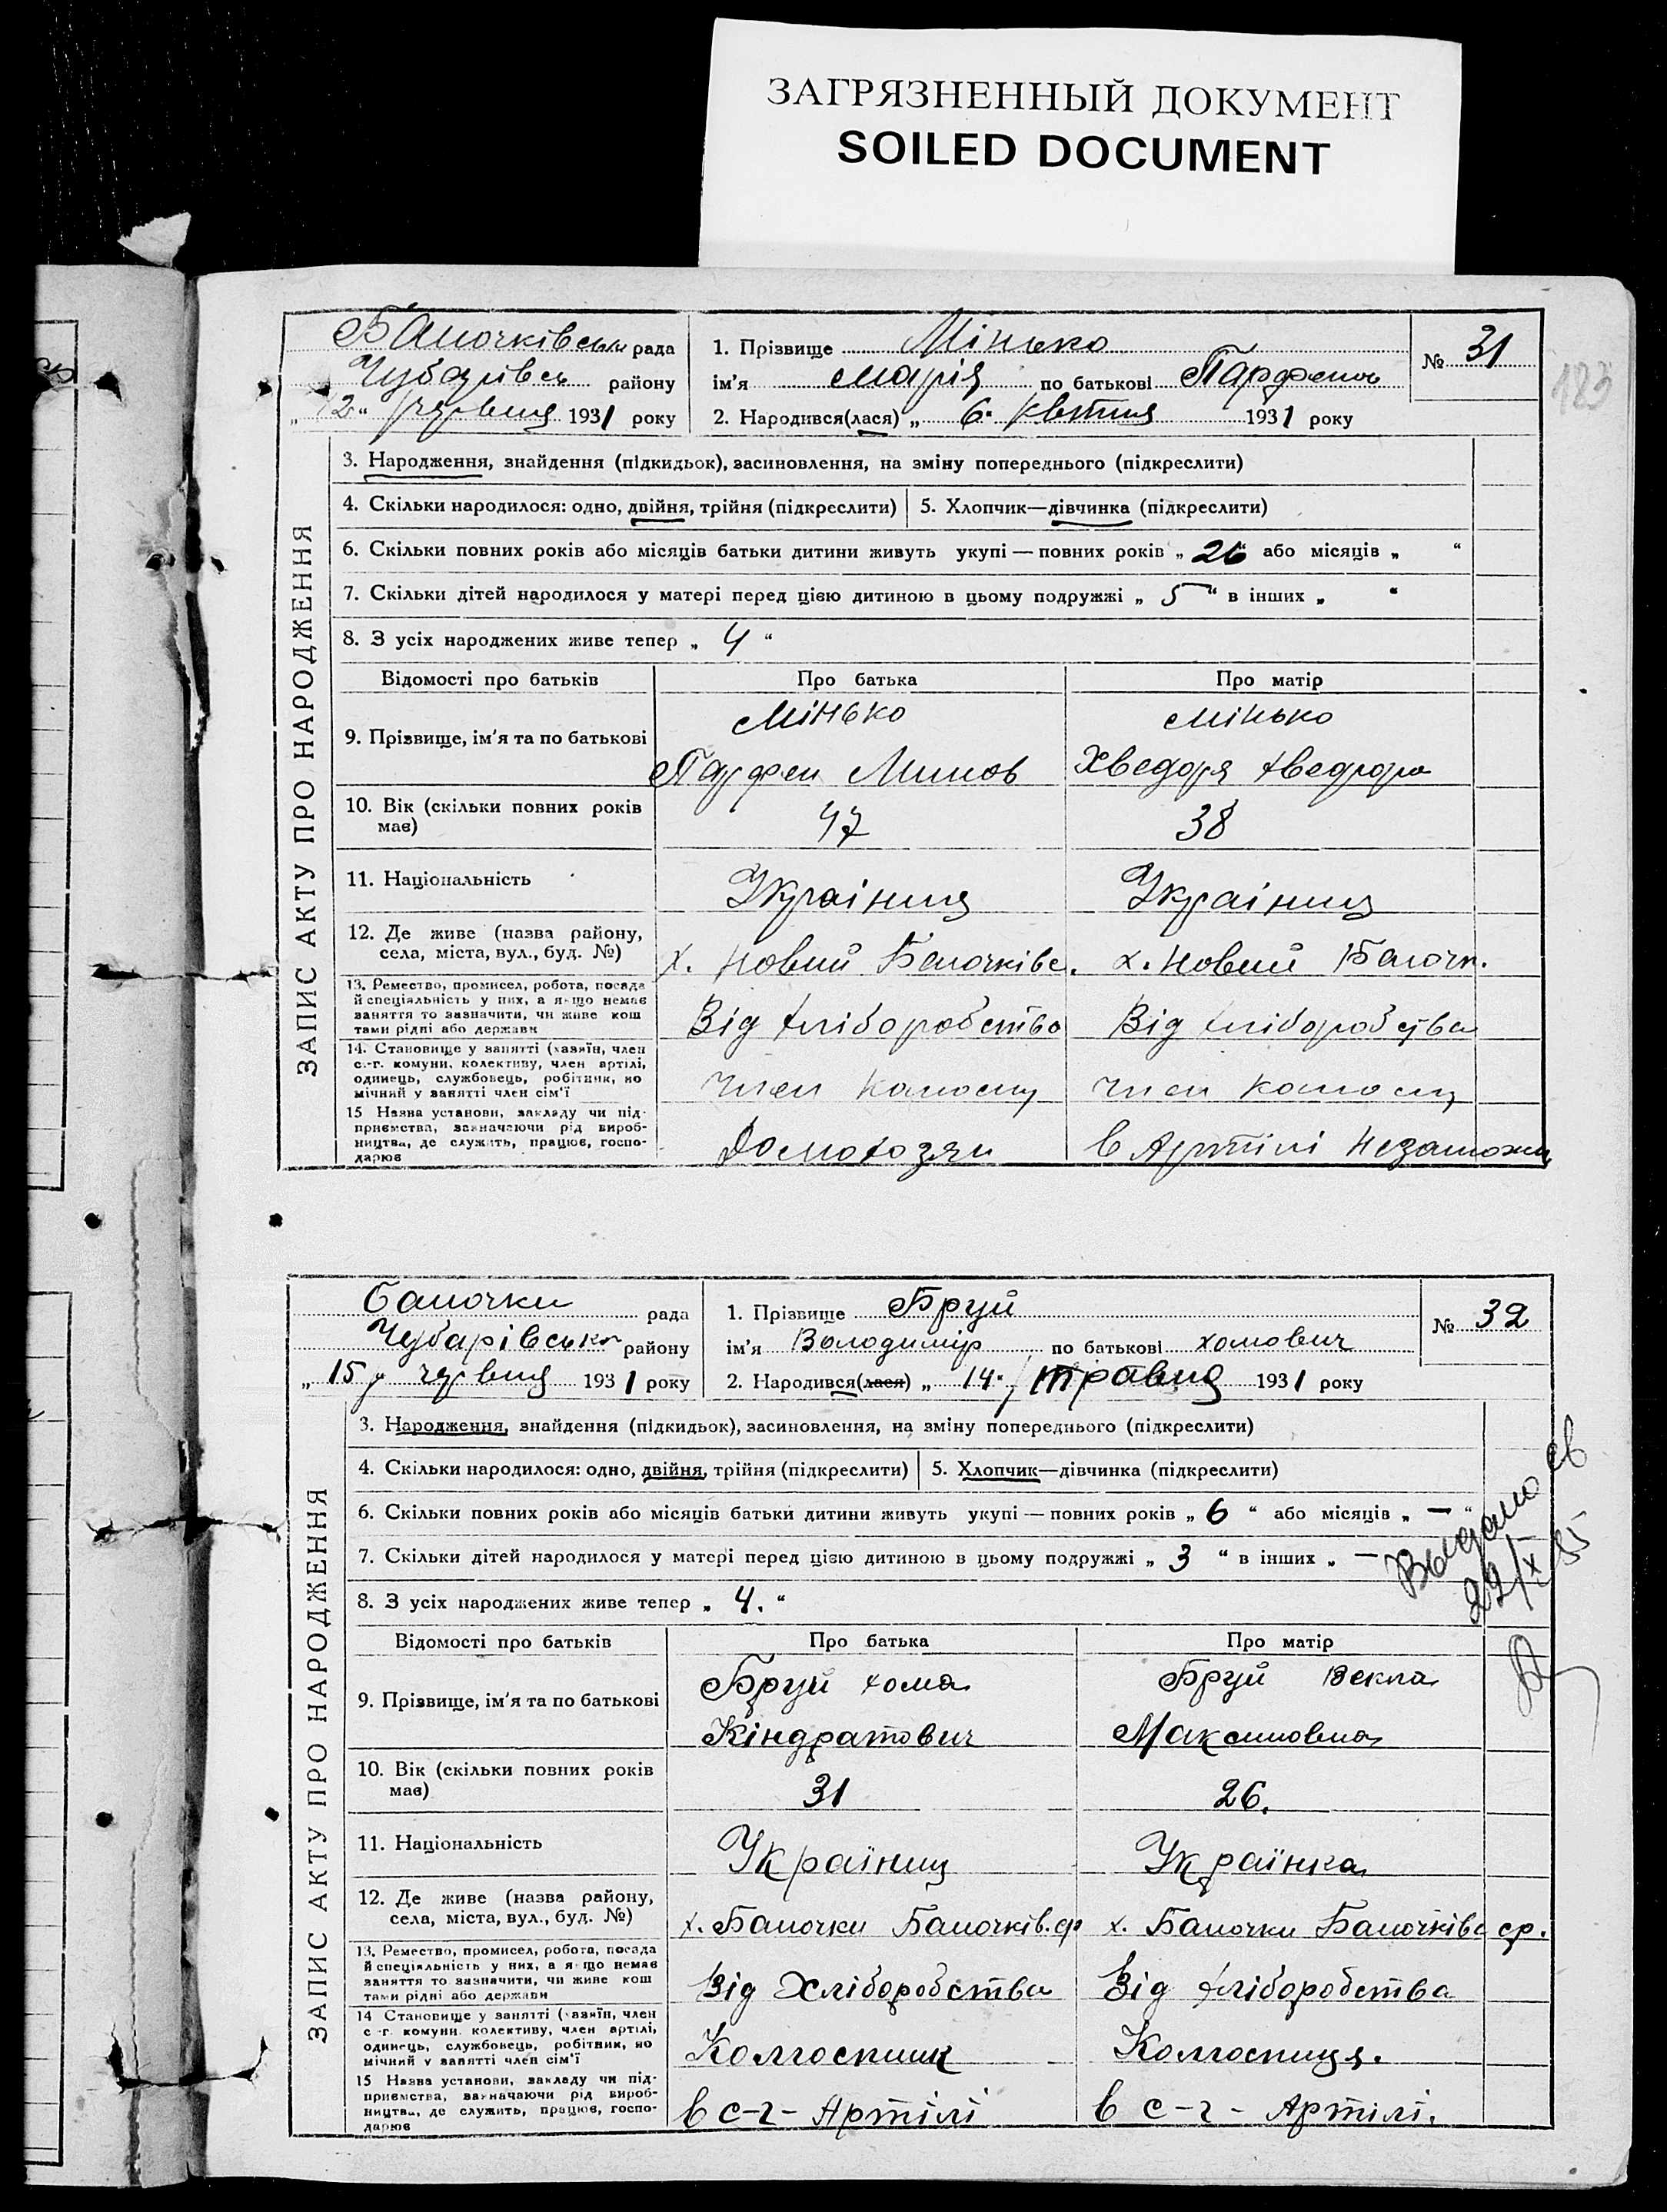 ЗАГРЯЗНЕННЫЙ ДОКУМЕНТ
SOILED DOCUMENT
183
ЗАПИС АКТУ ПРО НАРОДЖЕННЯ
Балочківськ рада
Чубарівськ району
„12“ червця 1931 року
1. Прізвище Мінько
ім'я Марія по батькові Парфенов
2. Народився(лася) „6“ квітня 1931 року
№ 31
3. Народження, знайдення (підкидьок), засиновлення, на зміну попереднього (підкреслити)
4. Скільки народилося: одно, двійня, трійня (підкреслити) 5. Хлопчик—дівчинка (підкреслити)
6. Скільки повних років або місяців батьки дитини живуть укупі — повних років „26“ або місяців „ “
7. Скільки дітей народилося у матері перед цією дитиною в цьому подружжі „5“ в інших „ “
8. З усіх народжених живе тепер „4“
Відомості про батьків Про батька Про матір
9. Прізвище, ім'я та по батькові
Мінько Мінько
Парфен Минов Хведоря Хведоро
10. Вік (скільки повних років має) 47 38
11. Національність Україниц Україниц
12. Де живе (назва району, села, міста, вул., буд. №)
х. Новий Балочківс. х. Новий Балочк.
13. Ремество, промисел, робота, посада й спеціяльність у них, а якщо немає заняття то зазначити, чи живе кош тами рідні або держави
Від хліборобство Від хліборобства
14. Становище у занятті (хазяїн, член с.-г. комуни, колективу, член артілі, одинець, службовець, робітник, по мічний у занятті член сім'ї
Член колоспу Член колоспу
15 Назва установи, закладу чи під- приємства, зазначаючи рід вироб- ництва, де служить, працює, госпо- дарює
Домохозян в Артілі Незаможн
ЗАПИС АКТУ ПРО НАРОДЖЕННЯ
Балочки рада
Чубарівсько району
„15“ червця 1931 року
1. Прізвище Бруй
ім'я Володимір по батькові Хомович
2. Народився(лася) „14“ травня 1931 року
№ 32
3. Народження, знайдення (підкидьок), засиновлення, на зміну попереднього (підкреслити)
4. Скільки народилося: одно, двійня, трійня (підкреслити) 5. Хлопчик—дівчинка (підкреслити)
6. Скільки повних років або місяців батьки дитини живуть укупі — повних років „6“ або місяців „—“
7. Скільки дітей народилося у матері перед цією дитиною в цьому подружжі „3“ в інших „—
8. З усіх народжених живе тепер „4.“
Выдано св
22/X 55
Відомості про батьків Про батька Про матір
9. Прізвище, ім'я та по батькові
Бруй Хома Бруй Векла
Кіндратович Максимовна
10. Вік (скільки повних років має) 31 26.
11. Національність Українц Українка
12. Де живе (назва району, села, міста, вул., буд. №)
х. Балочки Балочків. ср х. Балочки Балочківс ср.
13. Ремество, промисел, робота, посада й спеціяльність у них, а якщо немає заняття то зазначити, чи живе кош тами рідні або держави
Від Хліборобства Від хліборобства
14 Становище у занятті (хазяїн, член с.-г. комуни, колективу, член артілі, одинець, службовець, робітник, по мічний у занятті член сім'ї
Колгоспник Колгоспниця.
15 Назва установи, закладу чи під- приємства, зазначаючи рід вироб- ництва, де служить, працює, госпо- дарює
в с-г- Артілі в с-г- Артілі.